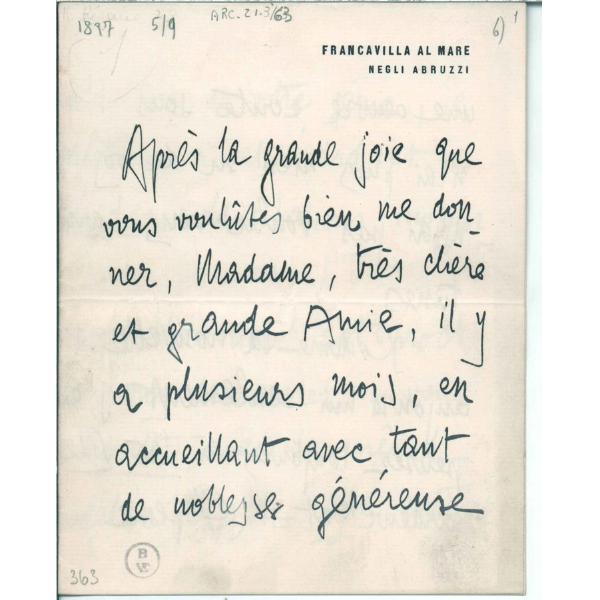 1897 5/9 ARC. 21.3/63 6) 1
FRANCAVILLA AL MARE
NEGLI ABRUZZI
Après la grande joie que
vous voulûtes bien me don-
ner, Madame, très chère
et grande Amie, il y
a plusieurs mois, en
accueillant avec tant
de noblesse généreuse
363